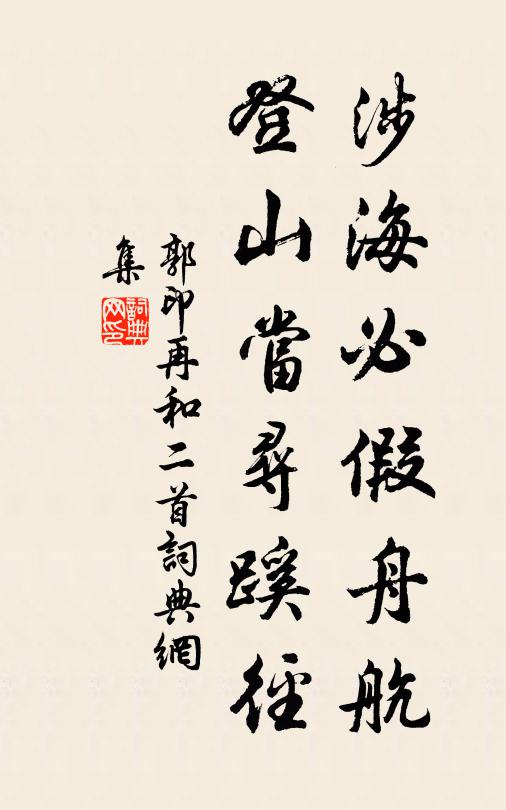 涉海必假舟航
登山當尋蹊徑
郭印再和二首詞典網
集
詞典
网印